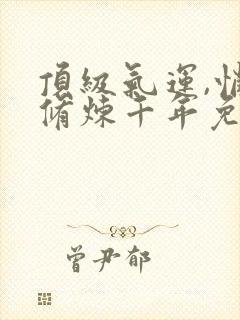 頂級氣運,悄
脩煉千年免
曾尹郁